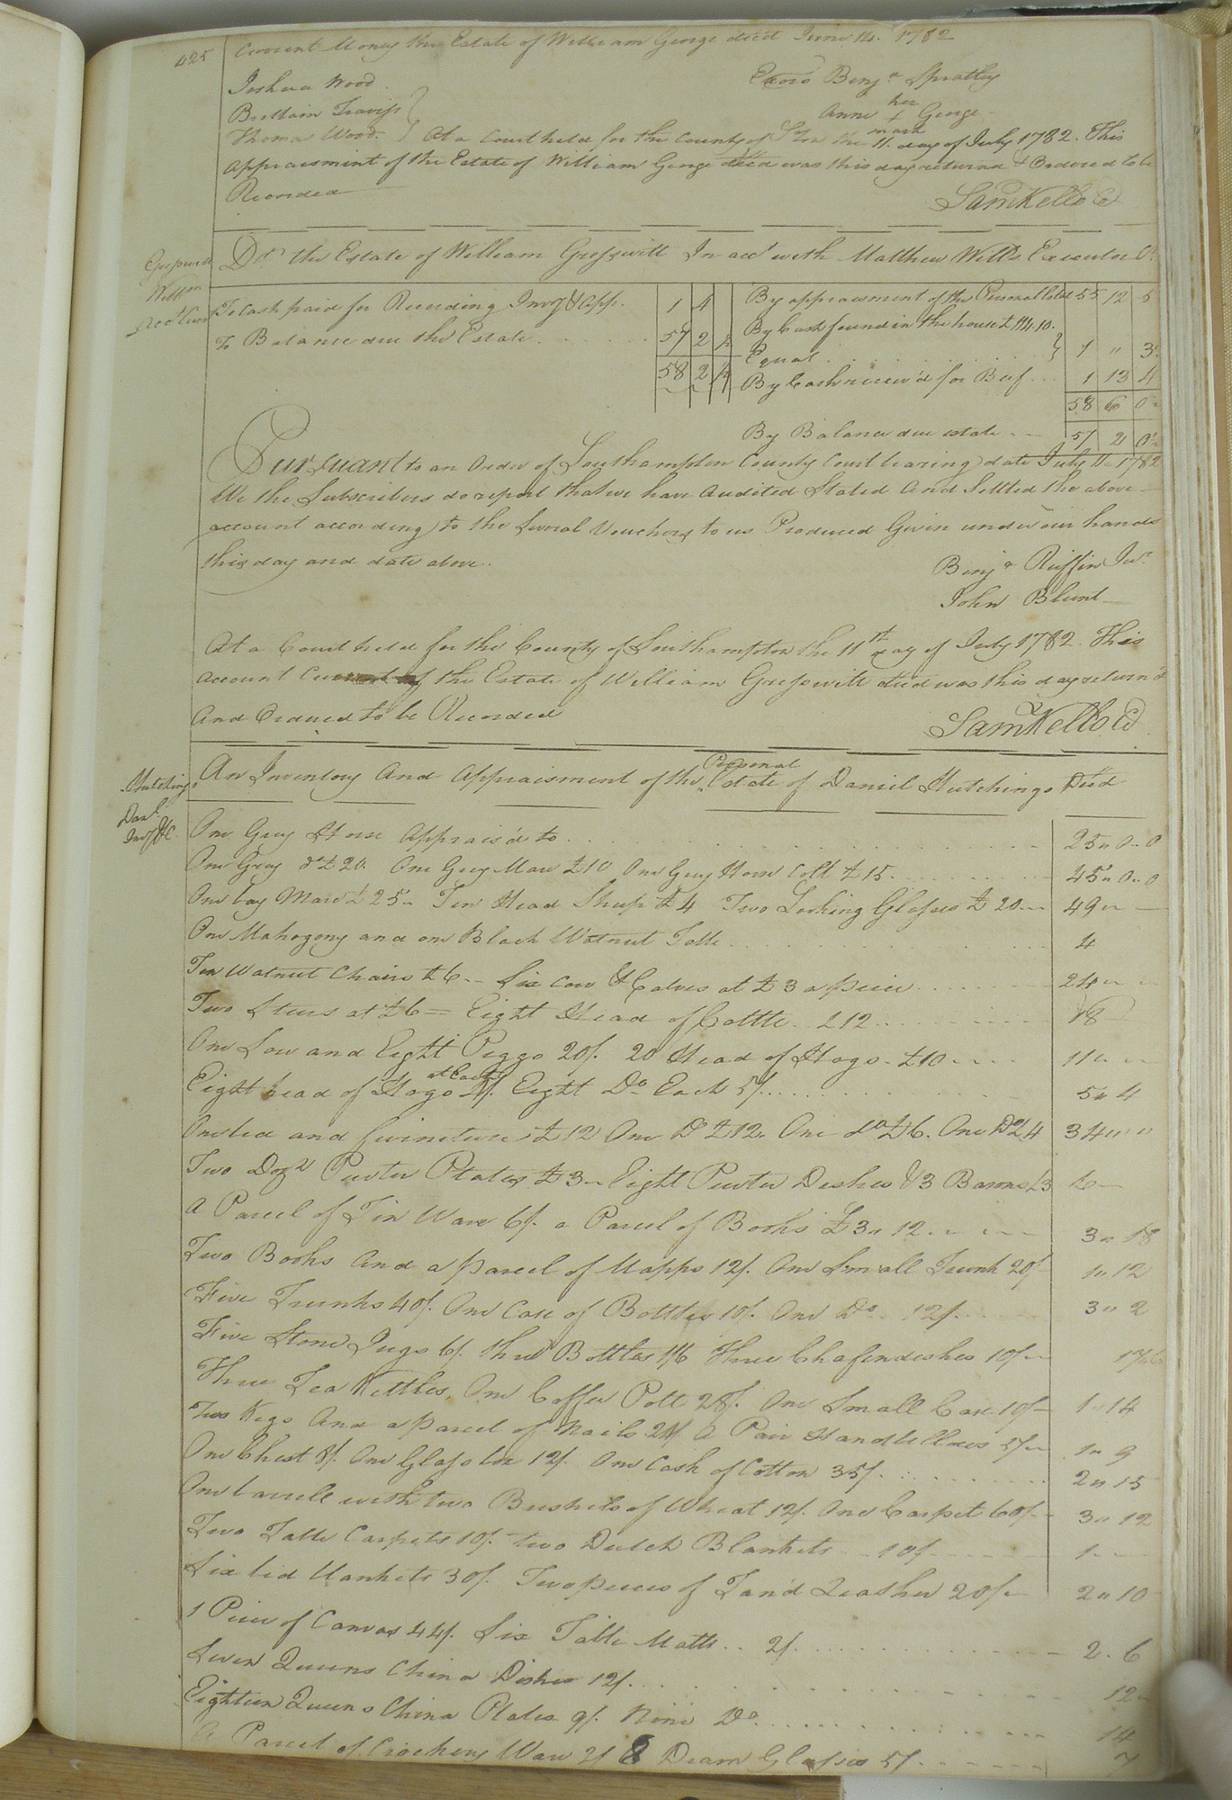 425
Current Money the Estate of William George dec'd June 14. 1782
Joshua Wood
Brittain Traviss
Thomas Wood
Exors Benja Spratley
her
Anne + George
mark
At a Court held for the County of S'ton the 11 day of July 1782. This
Appraisment of the Estate of William George decd was this day returned & Ordered to be
Recorded
Sam Kello Cl
Dr. the Estate of William Gresswitt In acct with Matthew Wills Executor Cr
Gresswitt
Willm
Acct Curr
To Cash paid for Recording Invy & App. 1 4
To Balance due the Estate 57 2
58 2
By appraisment of the Personal Estate 55 12 5
By Cash found in the house £114.10.
Equal 1 " 3
By Cash receiv'd for Beef 1 13 4
58 6 0
By Balance due estate 57 2 0
Pursuant to an Order of Southampton County Court bearing date July 11 1782
We the Subscribers do report that we have Audited Stated And Settled the above
account according to the Several Vouchers to us Produced Given under our hands
this day and date above.
Benja Ruffin Jur
John Blunt
At a Court held for the County of Southampton the 11th day of July 1782. This
Account Current of the Estate of William Gresswitt decd was this day return'd
And Ordered to be Recorded
Sam Kello Cl
Hutchings
Danl.
Invy &C.
An Inventory And Appraisment of the Personal Estate of Daniel Hutchings Decd
One Grey Horse Apprais'd to 25 " 0 " 0
One Gray do £20. One Grey Mare £10 One Gray Horse Colt £15 45 " 0 " 0
One bay Mare £25 " Ten Head Sheep £4 Two Looking Glasses £20 49 "
One Mahogony and one Black Walnut Table 4
Ten Walnut Chairs £6 Six Cow & Calves at £3 a piece 24 "
Two Steers at £6 = Eight Head of Cattle. £12 18
One Sow and Eight Piggs 20/. 20 Head of Hogs £10 11 "
Eight head of Hogs at Each /. Eight Do Each 5/. 5 " 4
One bed and furniture £12 One Do £12. One do £6. One Do £4 34 " "
Two Dozn Pewter Plates £3 Eight Pewter Dishes & 3 Basons £3 6
A Parcel of Tin Ware 6/. a Parcel of Books £3 " 12 3 " 18
Two Books And a parcel of Mapps 12/. One Small Trunk 20/ 1 " 12
Five Trunks 40/. One Case of Bottles 10/. One Do. 12/. 3 " 2
Five Stone Jugs 6/. three Bottles 1/6 Three Chafendishes 10/ 17 " 6
Three Tea Kettles, One Coffee Pott 28/. One Small Case 10/ 1 " 14
Two Kegs And a parcel of Nails 24/ A Pair Handbellows 5/ 1 " 9
One Chest 8/. One Glass box 12/. One Cask of Cotton 35/. 2 " 15
One barrell with two Bushels of Wheat 12/. One Carpet 60/ 3 " 12
Two Table Carpets 10/. Two Dutch Blankets 10/ 1
Six bed blankets 30/. Two pieces of Tan'd Leather 20/ 2 " 10
1 Piece of Canvas 44/. Six Table Matts 2/. 2 . 6
Seven Queens China Dishes 12/. 12
Eighteen Queens China Plates 9/. Nine Do 14
A Parcel of Crockery Ware 2/ 8 Dram Glasses 5/ 7